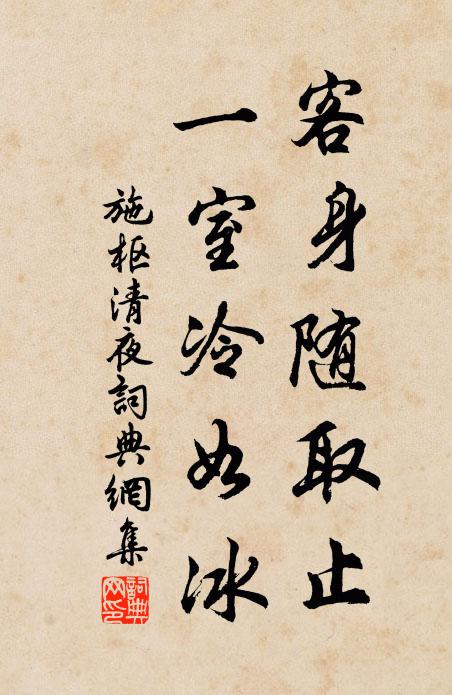 客身随取止
一室冷如冰
施枢清夜詞典網集
詞典
网印